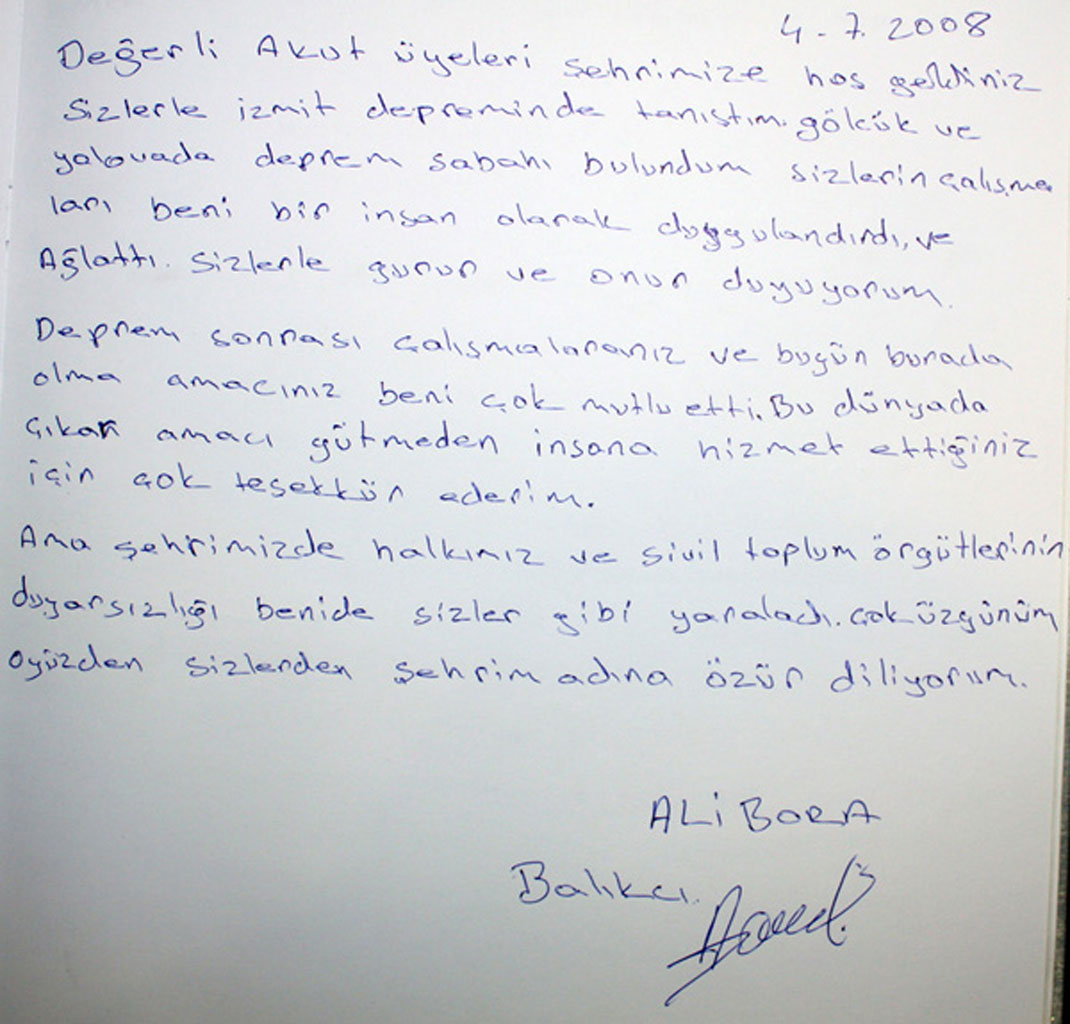 4-7.2008
Değerli Akut üyeleri şehrimize hoş geldiniz
Sizlerle izmit depreminde tanıştım. gölcük ve
yalovada deprem sabahı bulundum sizlerin çalışma
ları beni bir insan olarak duygulandırdı, ve
Ağlattı. Sizlerle gurur ve onur duyuyorum.
Deprem sonrası çalışmalarınız ve bugün burada
olma amacınız beni çok mutlu etti. Bu dünyada
çıkar amacı gütmeden insana hizmet ettiğiniz
için çok teşekkür ederim.
Ama şehrimizde halkımız ve sivil toplum örgütlerinin
duyarsızlığı benide sizler gibi yaraladı. çok üzgünüm
oyüzden sizlerden şehrim adına özür diliyorum.
ALİ BORA
Balıkcı.